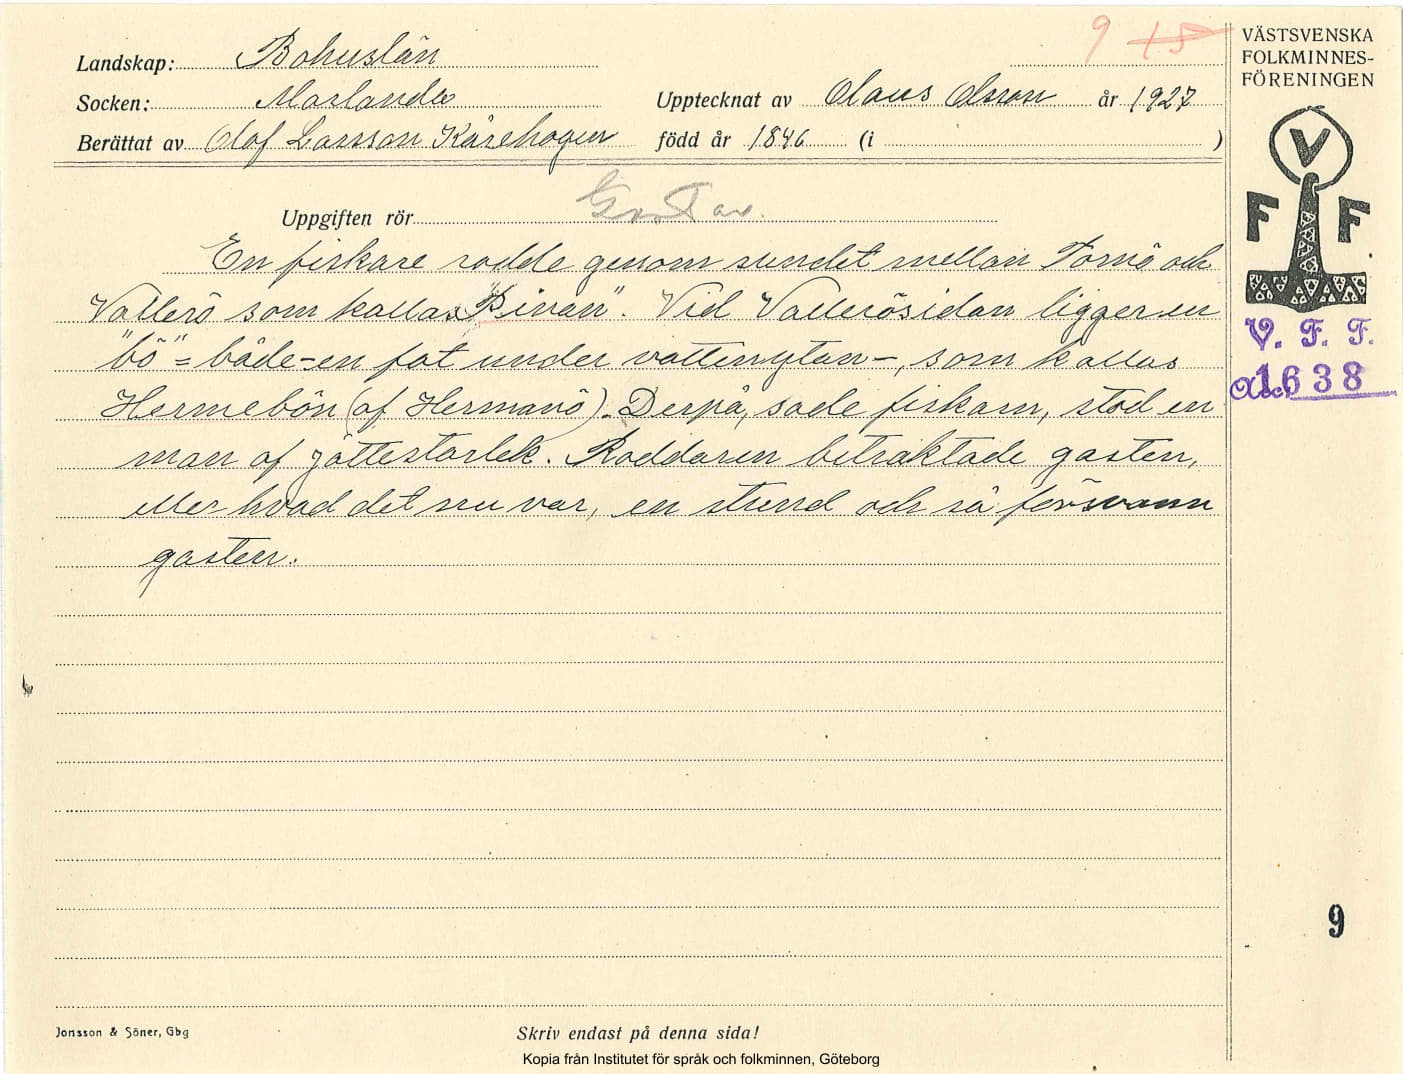 9 15
VÄSTSVENSKA
FOLKMINNES-
FÖRENINGEN
Landskap: Bohuslän
Socken: Morlanda
Upptecknat av Olaus Olsson år 1927
Berättat av Olof Larsson Kårehogen född år 1846 (i )
V
F F
Uppgiften rör Gastar.
En fiskare rodde genom sundet mellan Tornö och
Vallerö som kallas "Rinan". Vid Vallerösidan ligger en
"bö" = både - en fot under vattenytan -, som kallas
Hermebön (af Hermanö). Derpå, sade fiskarn, stod en
man af jättestorlek. Roddaren betraktade gasten,
eller hvad det nu var, en stund och så försvann
gasten.
V. F. F.
Acc. 1638
9
Jonsson & Söner, Gbg
Skriv endast på denna sida!
Kopia från Institutet för språk och folkminnen, Göteborg